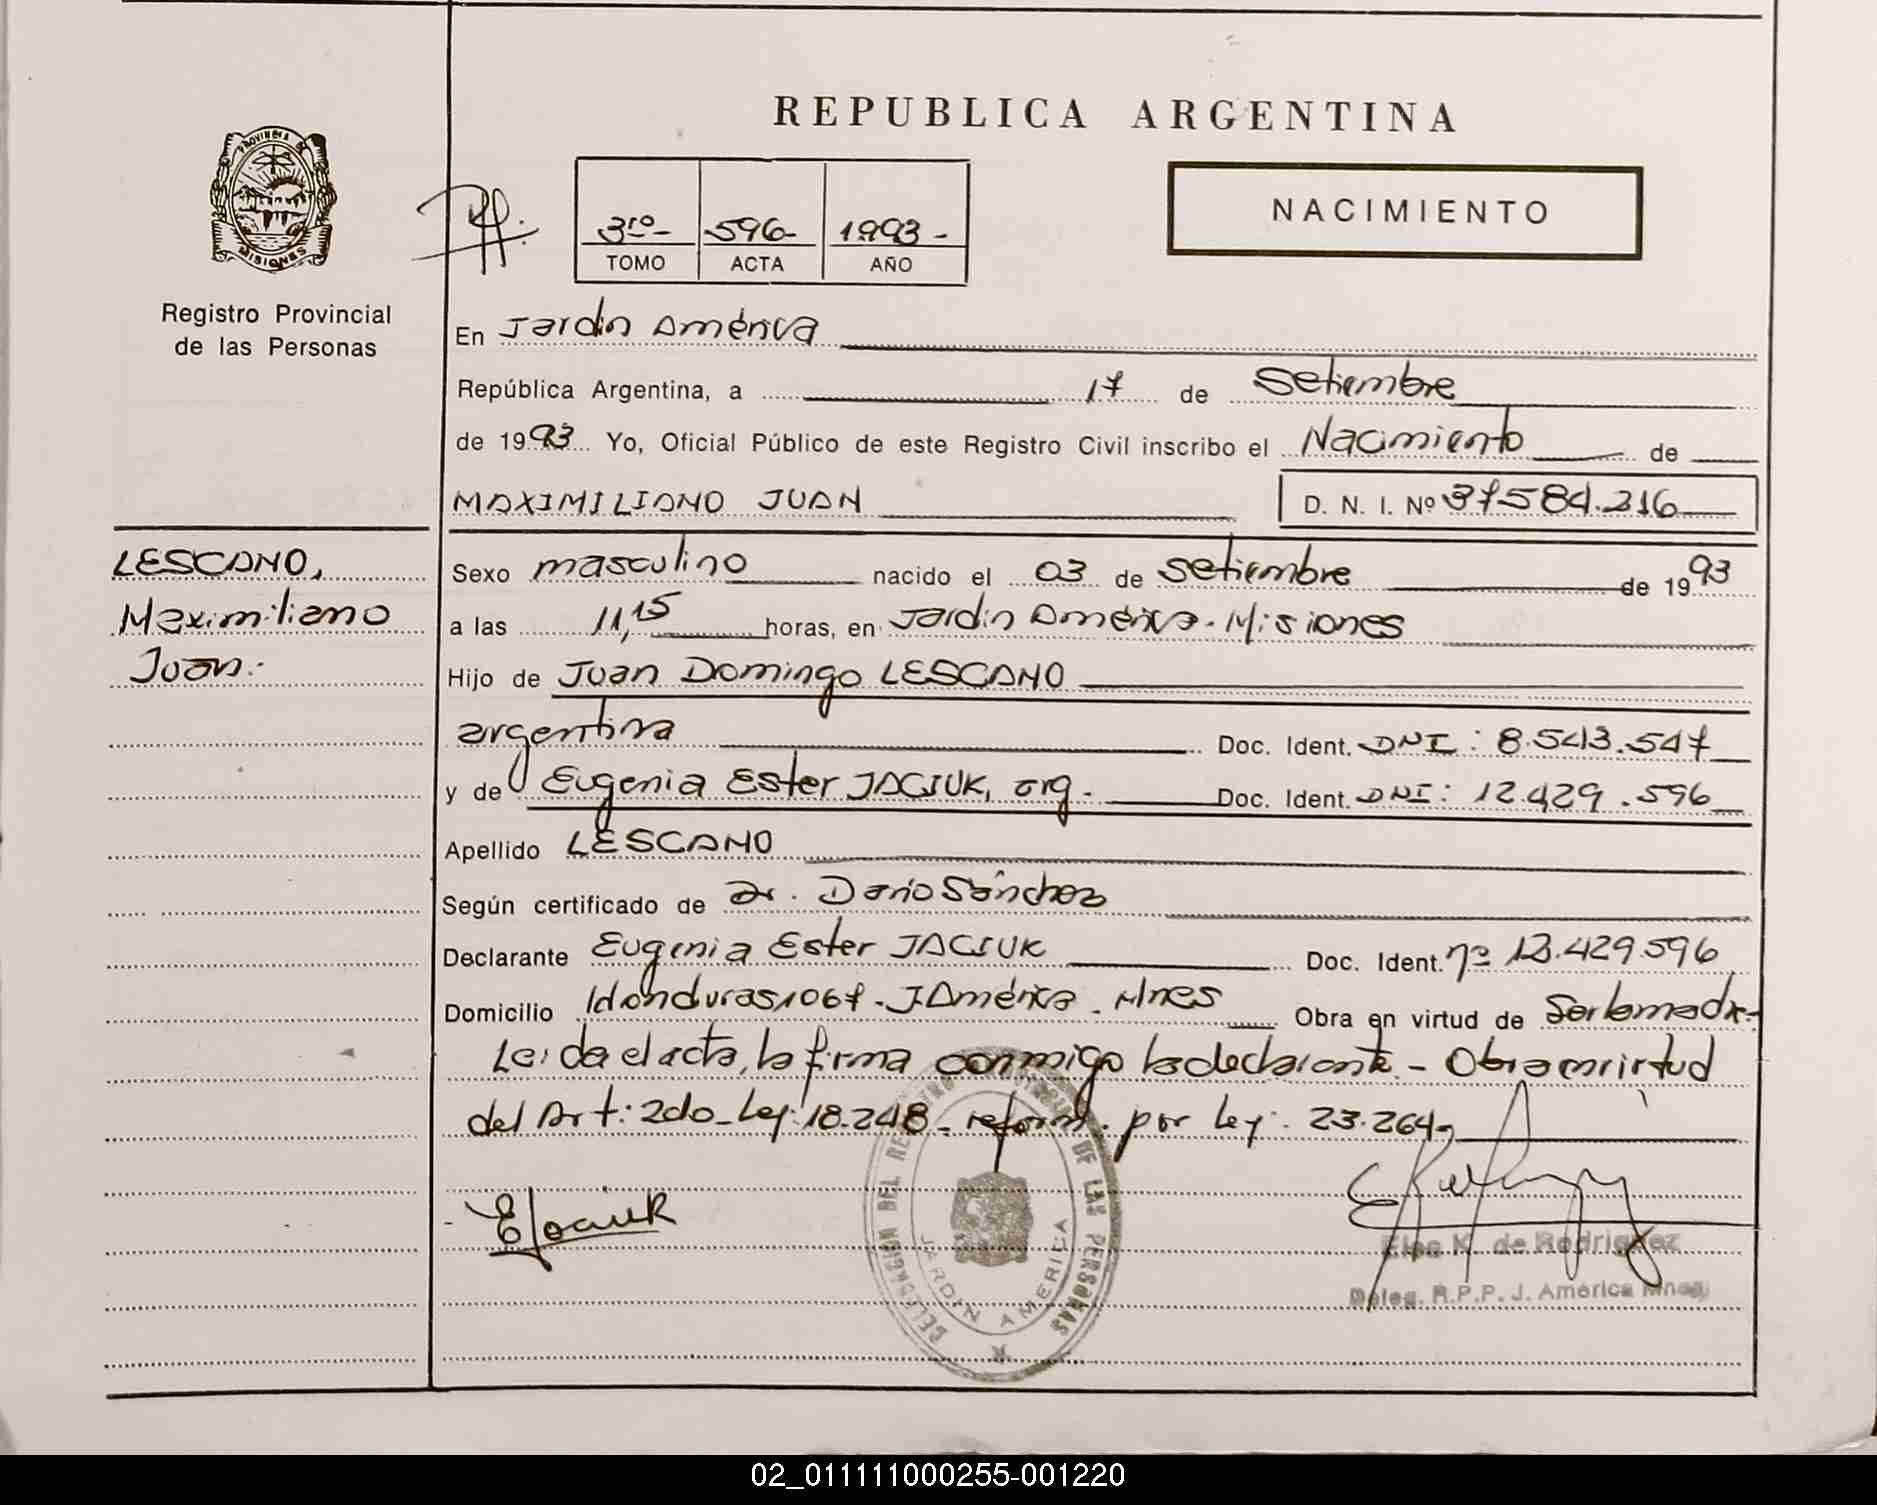 REPUBLICA ARGENTINA
PROVINCIA DE
MISIONES
3ro- 596- 1993-
TOMO ACTA AÑO
NACIMIENTO
Registro Provincial
de las Personas
En Jardín América
República Argentina, a 17 de Setiembre
de 1993 Yo, Oficial Público de este Registro Civil inscribo el Nacimiento de
MAXIMILIANO JUAN D. N. I. Nº 37584.216
LESCANO,
Maximiliano
Juan.
Sexo masculino nacido el 03 de Setiembre de 1993
a las 11,15 horas, en Jardín América-Misiones
Hijo de Juan Domingo LESCANO
argentina Doc. Ident. DNI: 8.543.547
y de Eugenia Ester JACIUK, arg. Doc. Ident. DNI: 12.429.596
Apellido LESCANO
Según certificado de Dr. Dario Sánchez
Declarante Eugenia Ester JACIUK Doc. Ident. nº 12.429.596
Domicilio Honduras 1067- J.América - Mnes Obra en virtud de Ser la madre-
Leida el acta, la firma conmigo la declarante.- Obra en virtud
del Art: 2do_Ley: 18.248- reform. por Ley: 23.264-
EJaciuk
DELEGACION DEL REGISTRO PROVINCIAL DE LAS PERSONAS
JARDIN AMERICA
Elsa K. de Rodriguez
Deleg. R.P.P. J. América Mnes
02_011111000255-001220